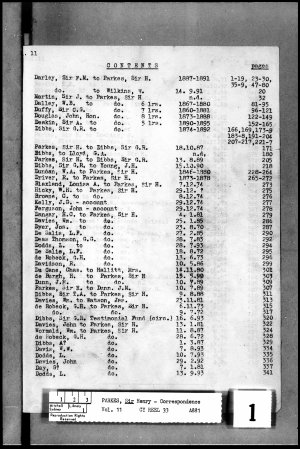 11
CONTENTS pages
Darley, Sir F.M. to Parkes, Sir H. 1887-1891 1-19, 23-30,
35-9, 47-80
do. to Wilkins, W. 14. 9.91 20
Martin, Sir J. to Parkes, Sir H n.d. 32
Dalley, W.B. to do. 6 lrs. 1867-1880 81-95
Duffy, Sir C.G. do. 7 lrs. 1860-1881 96-121
Douglas, John, Hon. do. 8 lrs. 1873-1888 122-149
Deakin, A. to do. 5 lrs. 1890-1895 152-165
Dibbs, Sir G.R. to do. 1874-1892 166,169,173-9
183-8,191-204
207-217,221-7
Parkes, Sir H. to Dibbs, Sir G.R. 18.10.87 171
Dibbs, to Lloyd, G.A. n.d. 181
Parkes, Sir H. to Dibbs, Sir G.R. 13. 8.89 205
Dibbs, Sir G.R. to Young, J.H. 15.10.90 218
Duncan, W.A. to Parkes, Sir H. 1846-1880 228-264
Driver, R. to Parkes, Sir H. 1873-1878 265-272
Blaxland, Louisa A. to Parkes, Sir H. 7.12.74 273
Hicky, W.H. to Parkes, Sir H. 29.12. 7 275
Browne, C. to do. 8.12.74 276
Kelly, J.G. - account 29.12.74 277
Ferguson, John - account 29.12.74 278
Hansar, H.C. to Parkes, Sir H. 4. 1.81 279
Davies, Wm. to do. 25. 1.86 285
Dyer, Jos. to do. 23. 8.70 287
De Salis, L.F. do. 27. 2.85 290
Deas Thomson, G.G. do. 28. 7.88 292
Dodds, L. to do. 28. 7.93 294
De Salis, L.F. do. 18. 8.72 295
de Robeck, G.H. do. 13. 6.73 296
Davidson, R. do. 10. 5.86 299
Du Cane, Chas. to Hallitt, Mrs. 14.11.80 301
de Burgh, H. to Parkes, Sir H 15. 9.90 303
Dunn, J.M. to do. 10. 7.89 307
Parkes, Sir H. to Dunn, J.M. 10. 7.89 308
Dibbs, Sir T.A. to Parkes, Sir H. 8. 8.86 309
Davies, Wm. to Watson, Jas. 23.11.81 313
de Robeck, G.H. to Parkes, Sir H. 6.11.73 315
do. do. 9. 7.72 317
Dibbs, Sir G.R. Testimonial Fund (circ.) 16. 6.93 320
Davies, John to Parkes, Sir H. 13. 1.81 322
Wormald, Wm. to Parkes, Sir H. 11. 8.87 324
de Robeck, G.H. do. 28. 6.72 328
Dibbs, A? do. 1. 3.87 331
Davis, W.W. do. 7. 8.93 334
Dodds, L. do. 10. 7.93 335
Davies, John do. 29. 2.92 336
Day, S? do. 7. 1.81 337
Dodds, L. do. 13. 9.93 341
1 2 3
Mitchell Library
Sydney
Reproduction Rights
Reserved
PARKES, Sir Henry - Correspondence
Vol. 11 CY REEL 33 A881
1